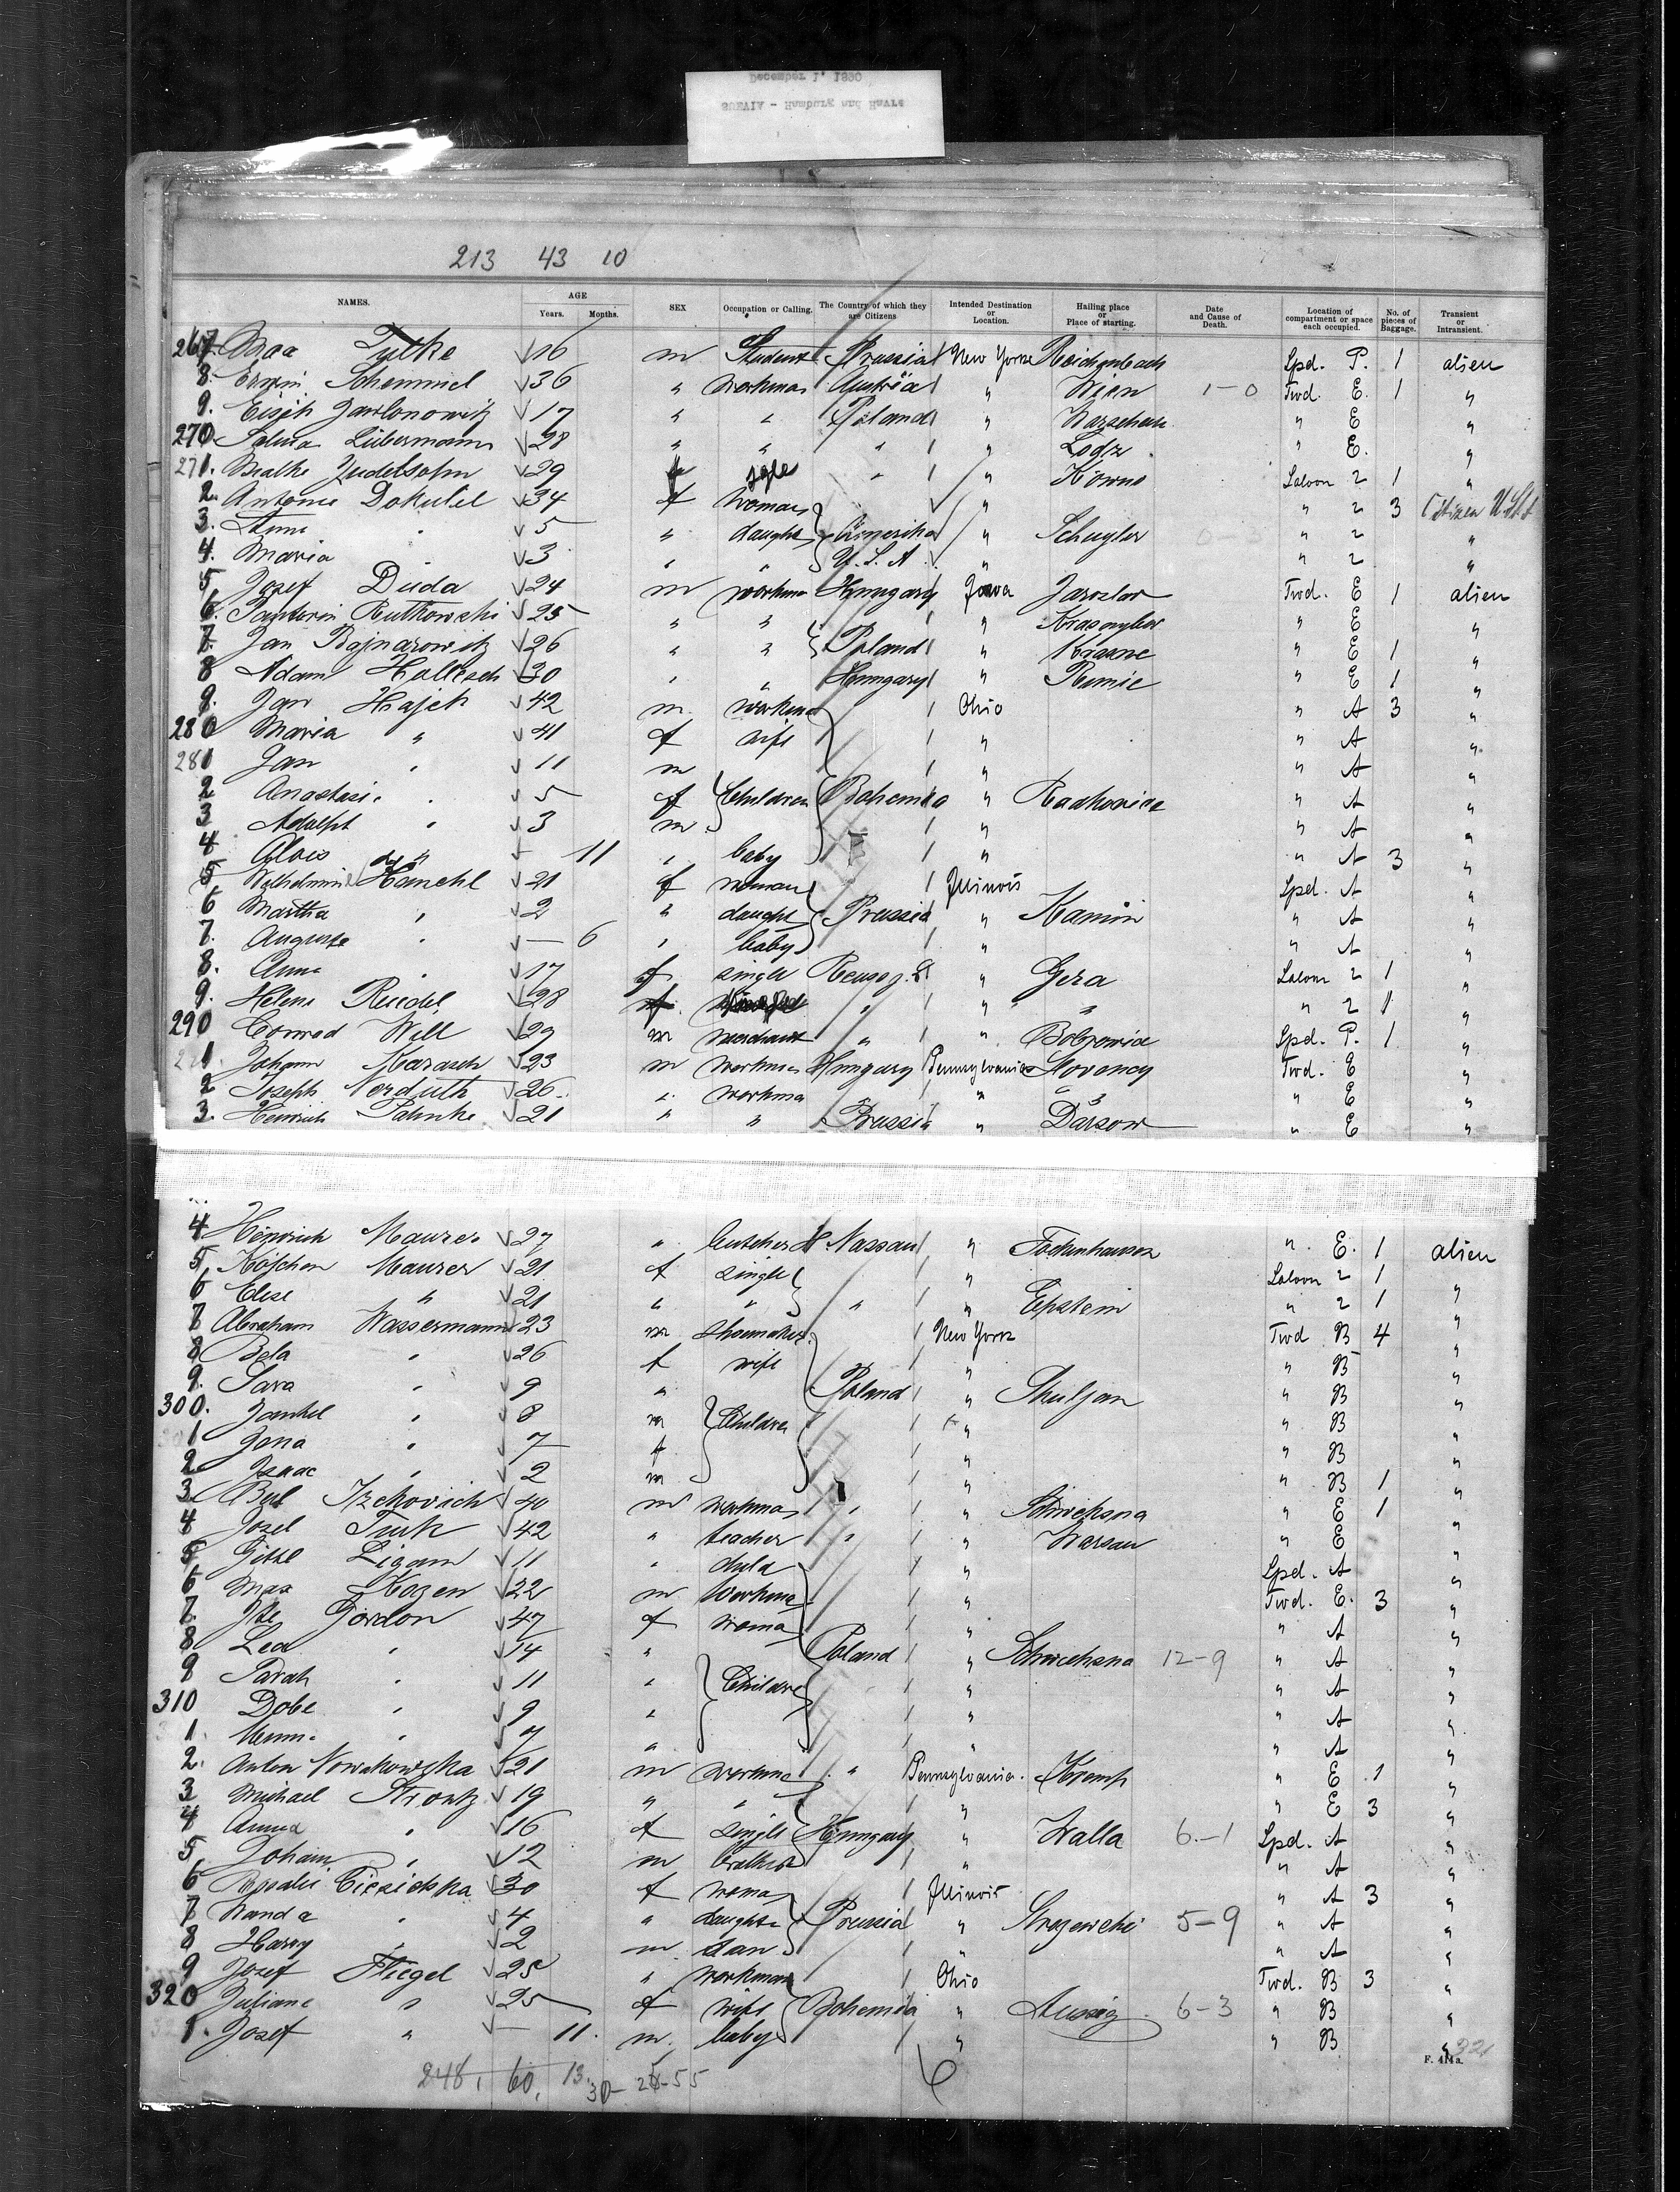 SUEVIA - Hamburg and Havre
December 1' 1890
213 43 10
NAMES. AGE Years. Months. SEX Occupation or Calling. The Country of which they are Citizens Intended Destination or Location. Hailing place or Place of starting. Date and Cause of Death. Location of compartment or space each occupied. No. of pieces of Baggage. Transient or Intransient.
267 Max 16 m Student Prussia New York Reichenbach Spd. P. 1 alien
8. Erwin Schemmel 36 " workman Austria " Wien 1-0 Twd. E. 1 "
9. 17 " " Poland " Warschau " E "
270 Salma Liebermann 28 " " " " Lodz " E. "
271. Malke Judelsohn 29 f sgle " " Kowno Saloon 2 1 "
2. Antonie Dokulil 34 f woman " " 2 3 Citizen U.St.
3. Anna " 5 " daught Amerika " Schuyler " 2 "
4. Maria " 3 " " U. S. A. " " 2 "
5. Josef Duda 24 m workman Hungary Iowa Jaroslav Twd. E 1 alien
6. Rutkowski 25 " " " " E "
7. Jan Bajnarowitz 26 " " Poland " Krasne " E 1 "
8 Adam 30 " " Hungary " " E 1 "
9. Jan Hajek 42 m. workman Ohio " A 3 "
280 Maria " 41 f wife " " A "
281 Jan " 11 m " " A "
2 Anastasia " 5 f Children Bohemia " Radkovice " A "
3 Adolph " 3 m " " A "
4 Alois " 11 " baby " " A 3 "
5 Wilhelmine 21 f woman Illinois Spd. A "
6 Martha " 2 " daught Prussia " Kamin " A "
7. Auguste " — 6 " baby " " A "
8. Anna " 17 f single Reuss j. L. " Gera Saloon 2 1 "
9. Helene Riedel 28 f. " " " " 2 1 "
290 Conrad Will 29 m merchant " " Spd. P. 1 "
1 Johann Karasch 23 m workman Hungary Pennsylvania Twd. E "
2 Joseph 26 " workman " " " E "
3. Heinrich 21 " " Prussia " Darsow " E "
4 Heinrich Maurer 27 " butcher H. Nassau " " E. 1 alien
5. Maurer 21 f single " Saloon 2 1 "
6 Elise " 21 " " " " Epstein " 2 1 "
7 Abraham Wassermann 23 m shoemaker New York Twd B 4 "
8 Bela " 26 f wife " " B "
9. Sara " 9 " Poland " " B "
300. Jankel " 8 m Children " " B "
1 " 7 f " " B "
2 Isaac " 2 m " " B 1 "
3. 40 m workman " " " E 1 "
4 Josel Turk 42 " teacher " " Warsau " E "
5 11 " " Spd. A "
6 Max Kozen 22 m workman " Twd. E. 3 "
7. Gordon 47 f woman " " A "
8 Lea " 14 " Poland " 12-9 " A "
9 Sarah " 11 " Children " " A "
310 Dobe " 9 " " " A "
1. " 7 " " " A "
2. Anton Nowakowska 21 m workman " Pennsylvania. Kemp " E 1 "
3 Michael 19 " " " " E 3 "
4 Anna " 16 f single Hungary " Walla 6-1 Spd. A "
5. Johann " 12 m brother " " A "
6 Rosalie 30 f woman Illinois " A 3 "
7 Wanda " 4 " daughter Prussia " 5-9 " A "
8 Harry " 2 m " " A "
9 Josef Fliegel 25 " workman Ohio Twd. B 3 "
320 Juliane " 25 f wife Bohemia " Aussig 6-3 " B "
1. Josef " — 11. m. baby " " B "
248. 60. 13. 30- 26-55 321
F. 414a.